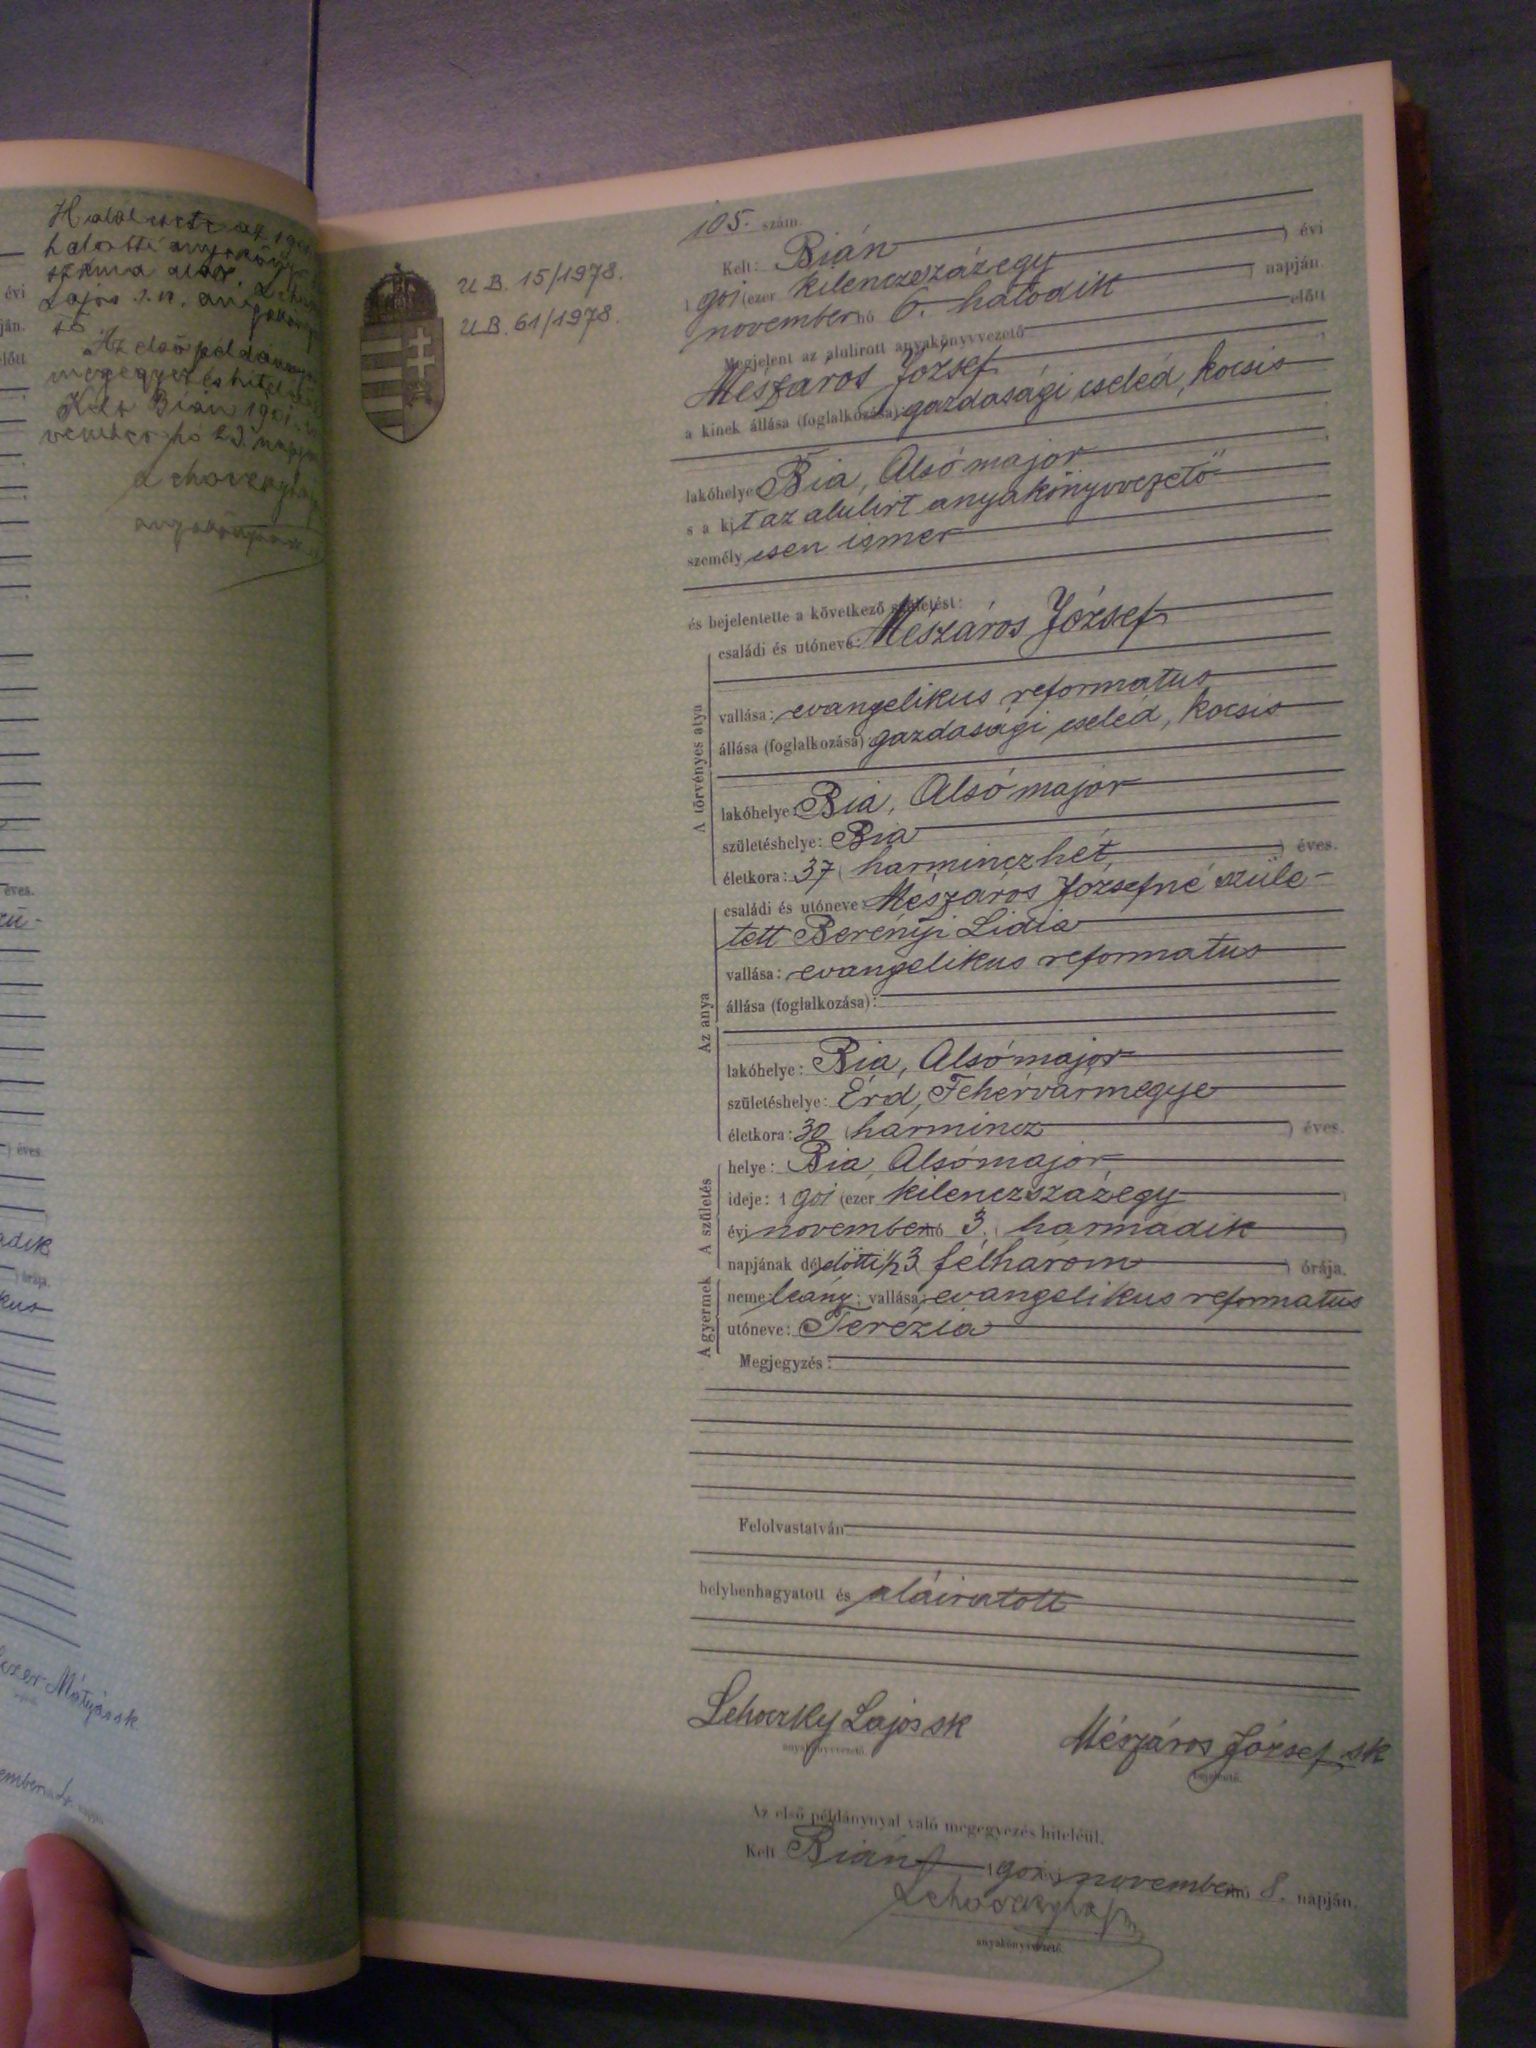 Halálesete az
halotti anyakönyv
szám alatt.
Lajos s.k. anyakönyv
Az első példánynyal
megegyez és hitel
Kelt Bián 1901
vember hó 23. napján
anyakönyvvezető
évi
ján.
előtt
éves.
zü-
) éves.
adik
) órája.
kus
czer Mátyás sk
ember
U.B. 15/1978.
U.B. 61/1978.
105. szám.
Kelt: Bián ) évi
1901 (ezer kilenczszázegy ) napján.
november hó 6. hatodik előtt
Megjelent az alulirott anyakönyvvezető
Mészáros József
a kinek állása (foglalkozása): gazdasági cseléd, kocsis
lakóhelye Bia, Alsómajor
s a kit az alulirt anyakönyvvezető
személyesen ismer
és bejelentette a következő születést:
A törvényes atya
családi és utóneve: Mészáros József
vallása: evangelikus reformatus
állása (foglalkozása): gazdasági cseléd, kocsis
lakóhelye: Bia, Alsómajor
születéshelye: Bia
életkora: 37 (harminczhét ) éves.
Az anya
családi és utóneve: Mészáros Józsefné szüle-
tett Berényi Lidia
vallása: evangelikus reformatus
állása (foglalkozása):
lakóhelye: Bia, Alsómajor
születéshelye: Érd, Fehérvármegye
életkora: 30 (harmincz ) éves.
A születés
helye: Bia, Alsómajor,
ideje: 1901 (ezer kilenczszázegy )
évi november hó 3. (harmadik )
napjának délelőtti ½3 félhárom ) órája.
A gyermek
neme: leány; vallása: evangelikus reformatus
utóneve: Terézia
Megjegyzés:
Felolvastatván
helybenhagyatott és aláiratott
Lehoczky Lajos sk
anyakönyvvezető.
Mészáros József sk
bejelentő.
Az első példánynyal való megegyezés hiteléül.
Kelt Bián 1901 évi november hó 8. napján.
Lehoczky Lajos
anyakönyvvezető.